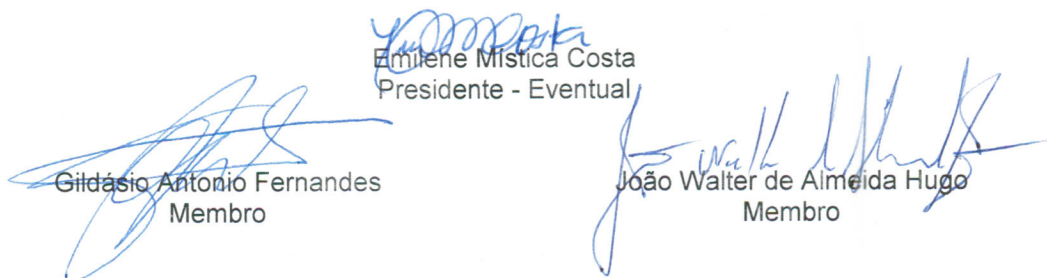 Emilene Mística Costa
Presidente - Eventual
Gildásio Antonio Fernandes
Membro
João Walter de Almeida Hugo
Membro